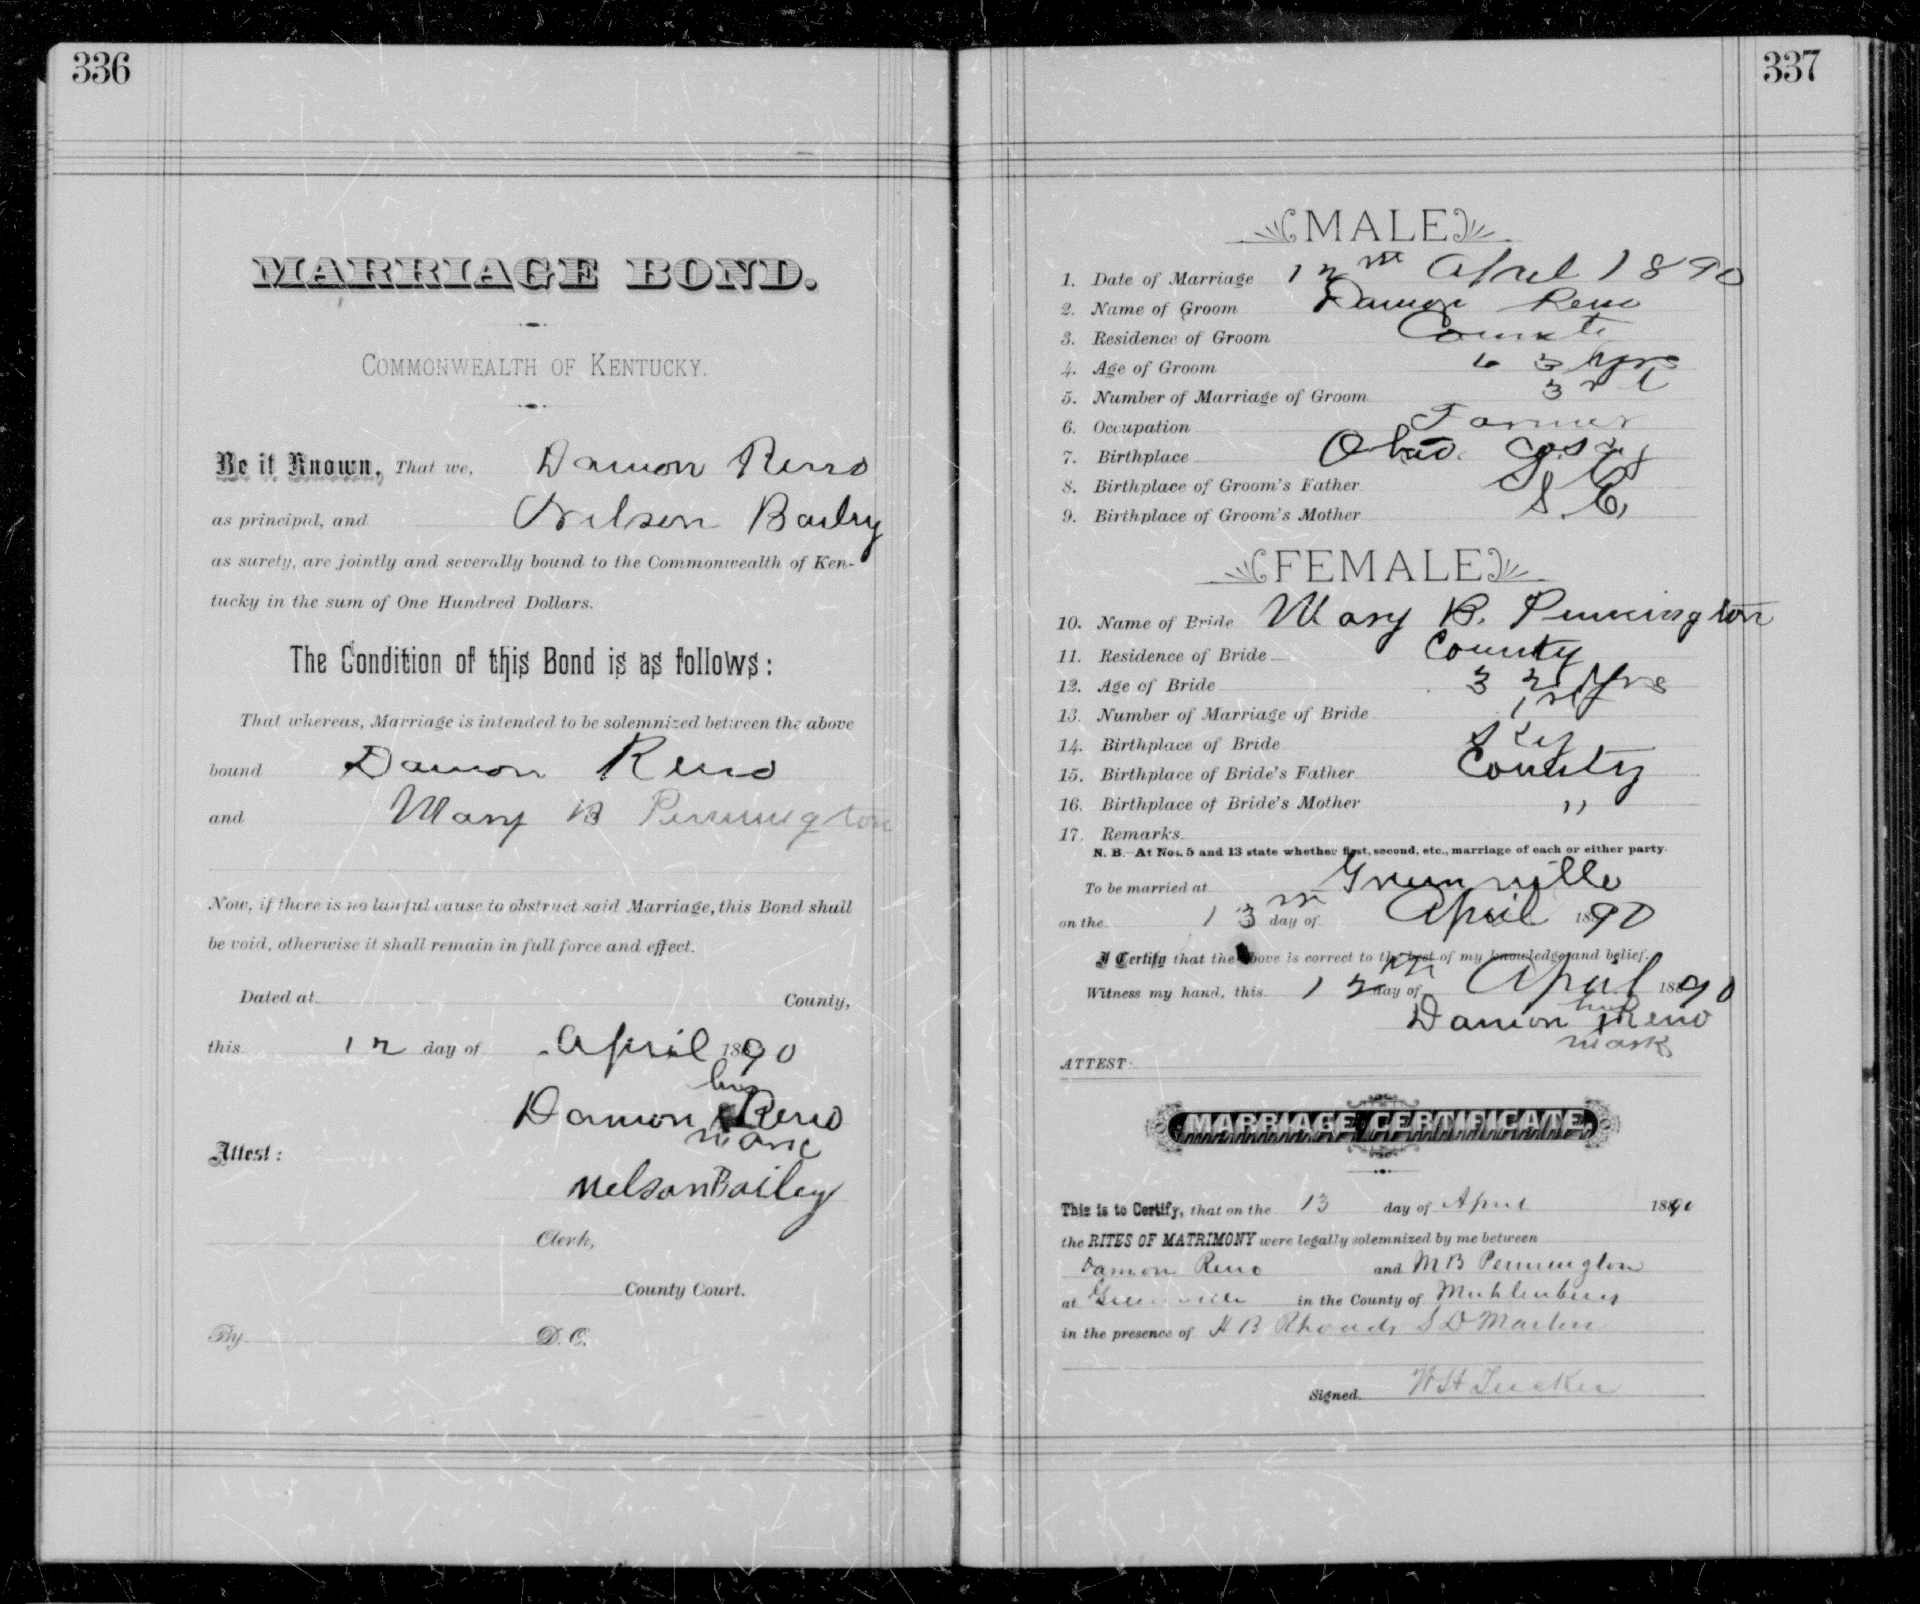 336
MARRIAGE BOND.
COMMONWEALTH OF KENTUCKY.
Be it Known, That we, Damon Reno
as principal, and Nelson Bailey
as surety, are jointly and severally bound to the Commonwealth of Ken-
tucky in the sum of One Hundred Dollars.
The Condition of this Bond is as follows:
That whereas, Marriage is intended to be solemnized between the above
bound Damon Reno
and Mary B Pennington
Now, if there is no lawful cause to obstruct said Marriage, this Bond shall
be void, otherwise it shall remain in full force and effect.
Dated at County,
this 12 day of April 1890
his
Damon x Reno
mark
Attest:
Nelson Bailey
Clerk,
County Court.
By D. C.
337
MALE
1. Date of Marriage 12th April 1890
2. Name of Groom Damon Reno
3. Residence of Groom County
4. Age of Groom 63 yrs
5. Number of Marriage of Groom 3rd
6. Occupation Farmer
7. Birthplace Ohio Co. Ky
8. Birthplace of Groom's Father S. C.
9. Birthplace of Groom's Mother S. C.
FEMALE
10. Name of Bride Mary B. Pennington
11. Residence of Bride County
12. Age of Bride 32 Yrs
13. Number of Marriage of Bride 1st
14. Birthplace of Bride Ky
15. Birthplace of Bride's Father County
16. Birthplace of Bride's Mother "
17. Remarks
N. B.—At Nos. 5 and 13 state whether first, second, etc., marriage of each or either party.
To be married at Greenville
on the 13th day of April 1890
I Certify that the above is correct to the best of my knowledge and belief.
Witness my hand, this 12th day of April 1890
his
Damon x Reno
mark
ATTEST:
MARRIAGE CERTIFICATE.
This is to Certify, that on the 13 day of April 1890
the RITES OF MATRIMONY were legally solemnized by me between
Damon Reno and M B Pennington
at Greenville in the County of Muhlenberg
in the presence of H B Rhoads S D Martin
Signed W H Tucker